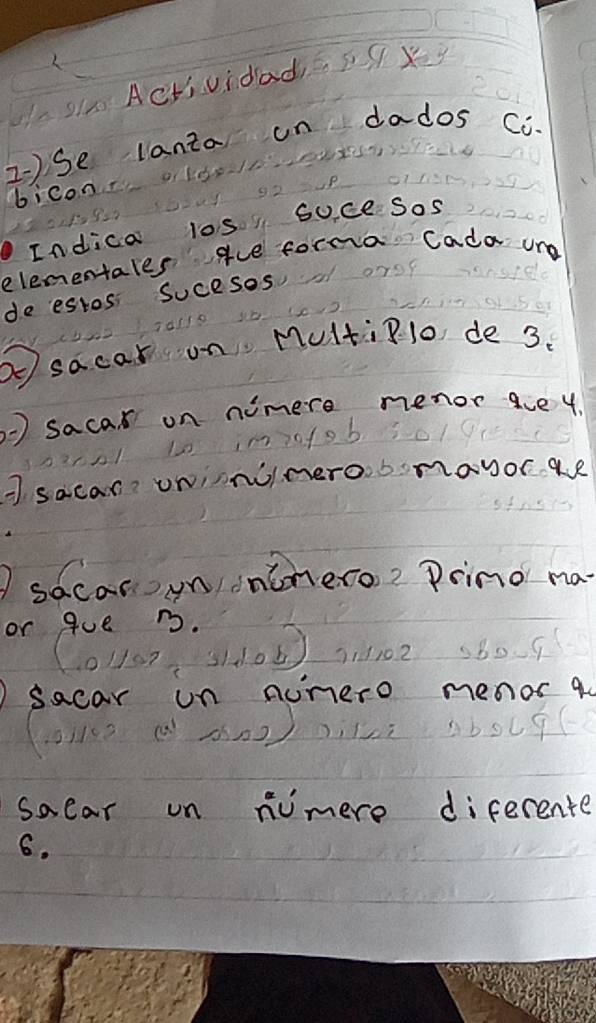 Actividad
1-) Se lanza un dados cú-
bicon
• Indica los sucesos
elementales que forma cada uno
de estos sucesos
a) sacar un MultiPlo de 3.
-) sacar un número menor que 4.
-) sacar un número mayor que
.
) sacar un número Primo ma-
or que 3.
) sacar un número menor q
sacar un número diferente
6.